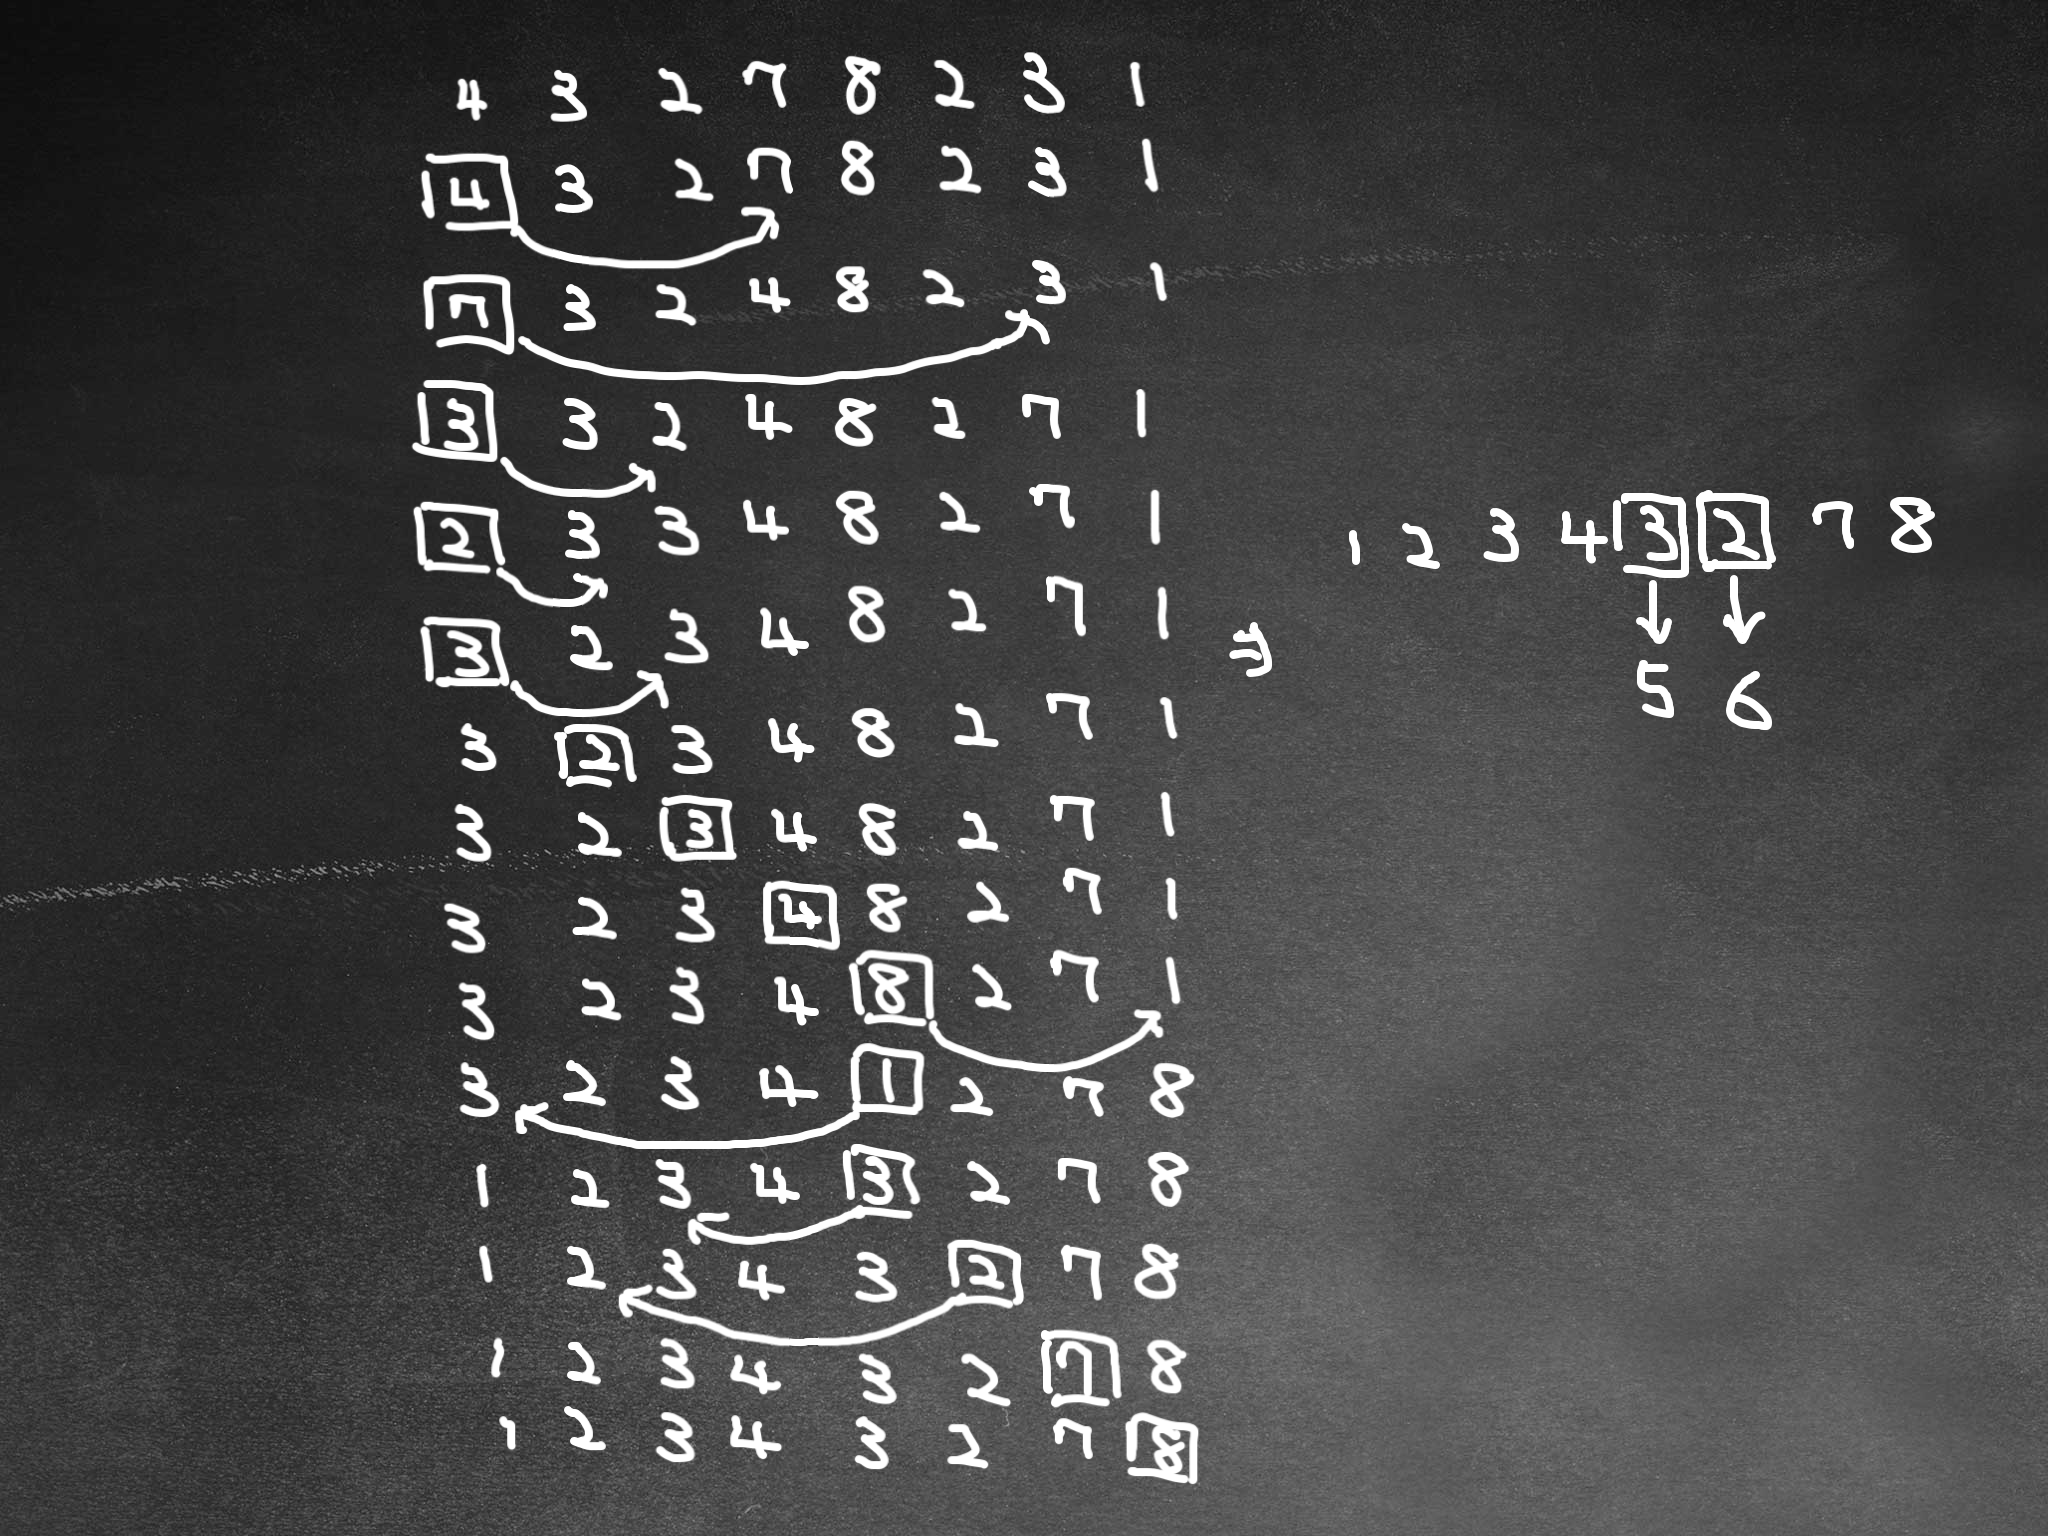 4 3 2 7 8 2 3 1
4 3 2 7 8 2 3 1
7 3 2 4 8 2 3 1
3 3 2 4 8 2 7 1
2 3 3 4 8 2 7 1
3 2 3 4 8 2 7 1
3 2 3 4 8 2 7 1
3 2 3 4 8 2 7 1
3 2 3 4 8 2 7 1
3 2 3 4 8 2 7 1
3 2 3 4 1 2 7 8
1 2 3 4 3 2 7 8
1 2 3 4 3 2 7 8
1 2 3 4 3 2 7 8
1 2 3 4 3 2 7 8
⇒
1 2 3 4 3 2 7 8
↓ ↓
5 6